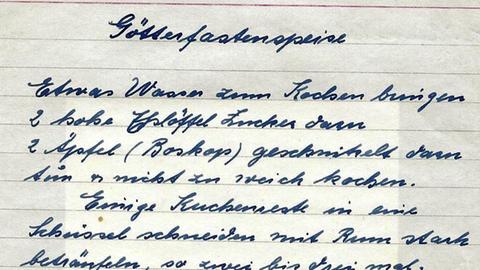 Götterfastenspeise
Etwas Wasser zum Kochen bringen
2 hohe Eßlöffel Zucker darn
2 Äpfel (Boskop) geschnitzelt darn
tun u nicht zu weich kochen.
Einige Kuchenreste in eine
Schüssel schneiden mit Rum stark
beträufeln, so zwei bis drei mal.